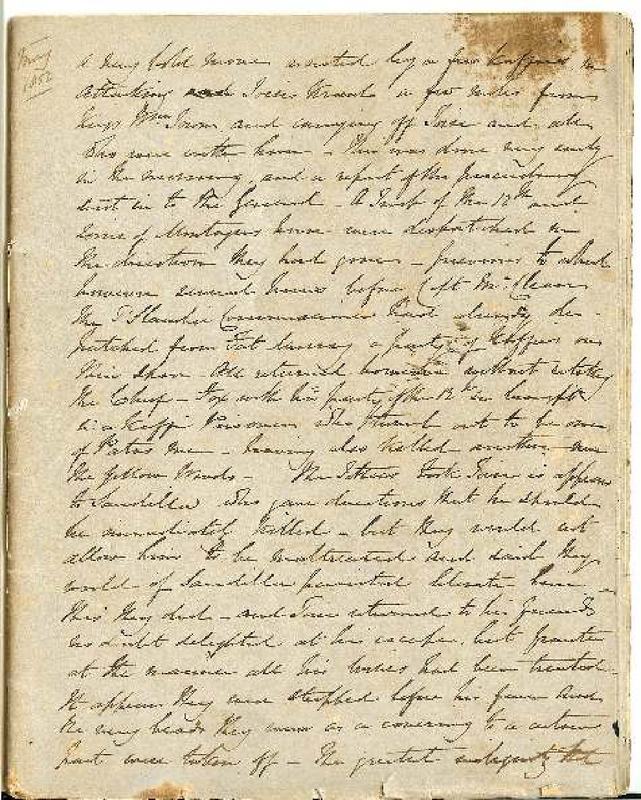 1852
A very bold move executed by a few Kaffirs in
attacking Toise's Kraal a few miles from
King Wms Town and carrying off Toise and all
who were with him - This was done very early
in the morning, and a report of the proceedings
sent in to the General - A Troop of the 12th and
some of Montagu's horse were despatched in
the direction they had gone - previous to which
however several hours before Capt McClean
the T'Slambie Commissioner had already des-
patched from Fort Murray a party of Kaffirs on
their Spoor - All returned however without
the Chief - Fox with his party of the 12th in brought
in a Kaffir Prisoner who turned out to be one
of Patos men - having also killed another near
the Yellow Woods - The took Toise it appears
to Sandilla who gave directions that he should
be immediately killed - but they would not
allow him to be maltreated and said they
would if Sandilla permitted liberate him -
This they did - and Toise returned to his friends
no doubt delighted at his escape, but
at the manner all his wives had been treated -
It appears they were stripped before his face and
the very beads they wore as a covering to a certain
part were taken off - The greatest indignity that